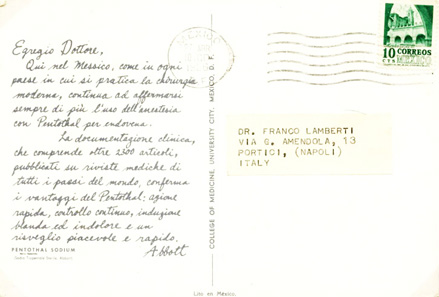 Egregio Dottore,
Qui nel Messico, come in ogni
paese in cui si pratica la chirurgia
moderna, continua ad affermarsi
sempre di più l'uso dell'anestesia
con Pentothal per endovena.
La documentazione clinica,
che comprende oltre 2300 articoli,
pubblicati su riviste mediche di
tutti i paesi del mondo, conferma
i vantaggi del Pentothal: azione
rapida, controllo continuo, induzione
blanda ed indolore e un
risveglio piacevole e rapido.
Abbott
PENTOTHAL SODIUM
COLLEGE OF MEDICINE, UNIVERSITY CITY, MEXICO, D. F.
10 CORREOS
CTS MEXICO
DR. FRANCO LAMBERTI
VIA G. AMENDOLA, 13
PORTICI, (NAPOLI)
ITALY
Lito en México.